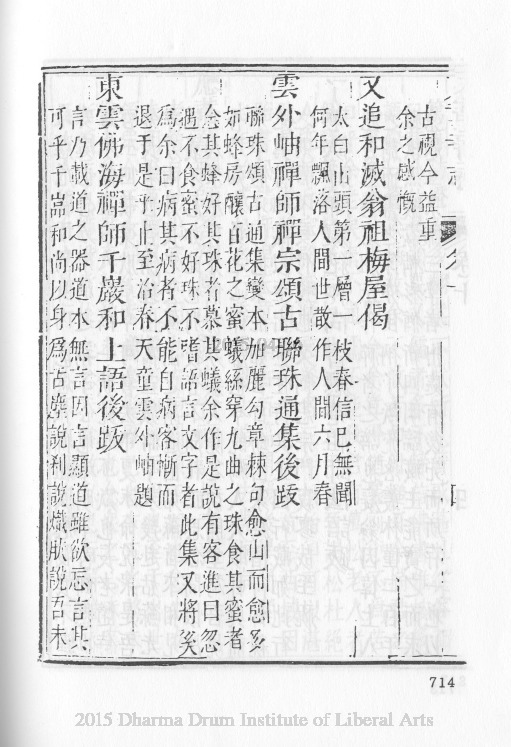 古視今益重
余之感慨
又追和滅翁祖梅屋偈
太白山頭第一層一枝春信已無聞
何年飄落人間世散作人間六月春
雲外岫禪師禪宗頌古聯珠通集後跋
聯珠頌古通集變本加麗勾章棘句愈出而愈多
如蜂房釀百花之蜜蟻絲穿九曲之珠食其蜜者
忘其蜂好其珠者慕其蟻余作是說有客進曰忽
遇不食蜜不好珠不嗜語言文字者此集又將奚
為余曰病其病者不能自病客慚而
退于是乎止至治春天童雲外岫題
東雲佛海禪師千巖和尚語後跋
言乃載道之器道本無言因言顯道雖欲忘言其
可乎千嵓和尚以身為舌塵說剎說熾然說吾未
714
2015 Dharma Drum Institute of Liberal Arts